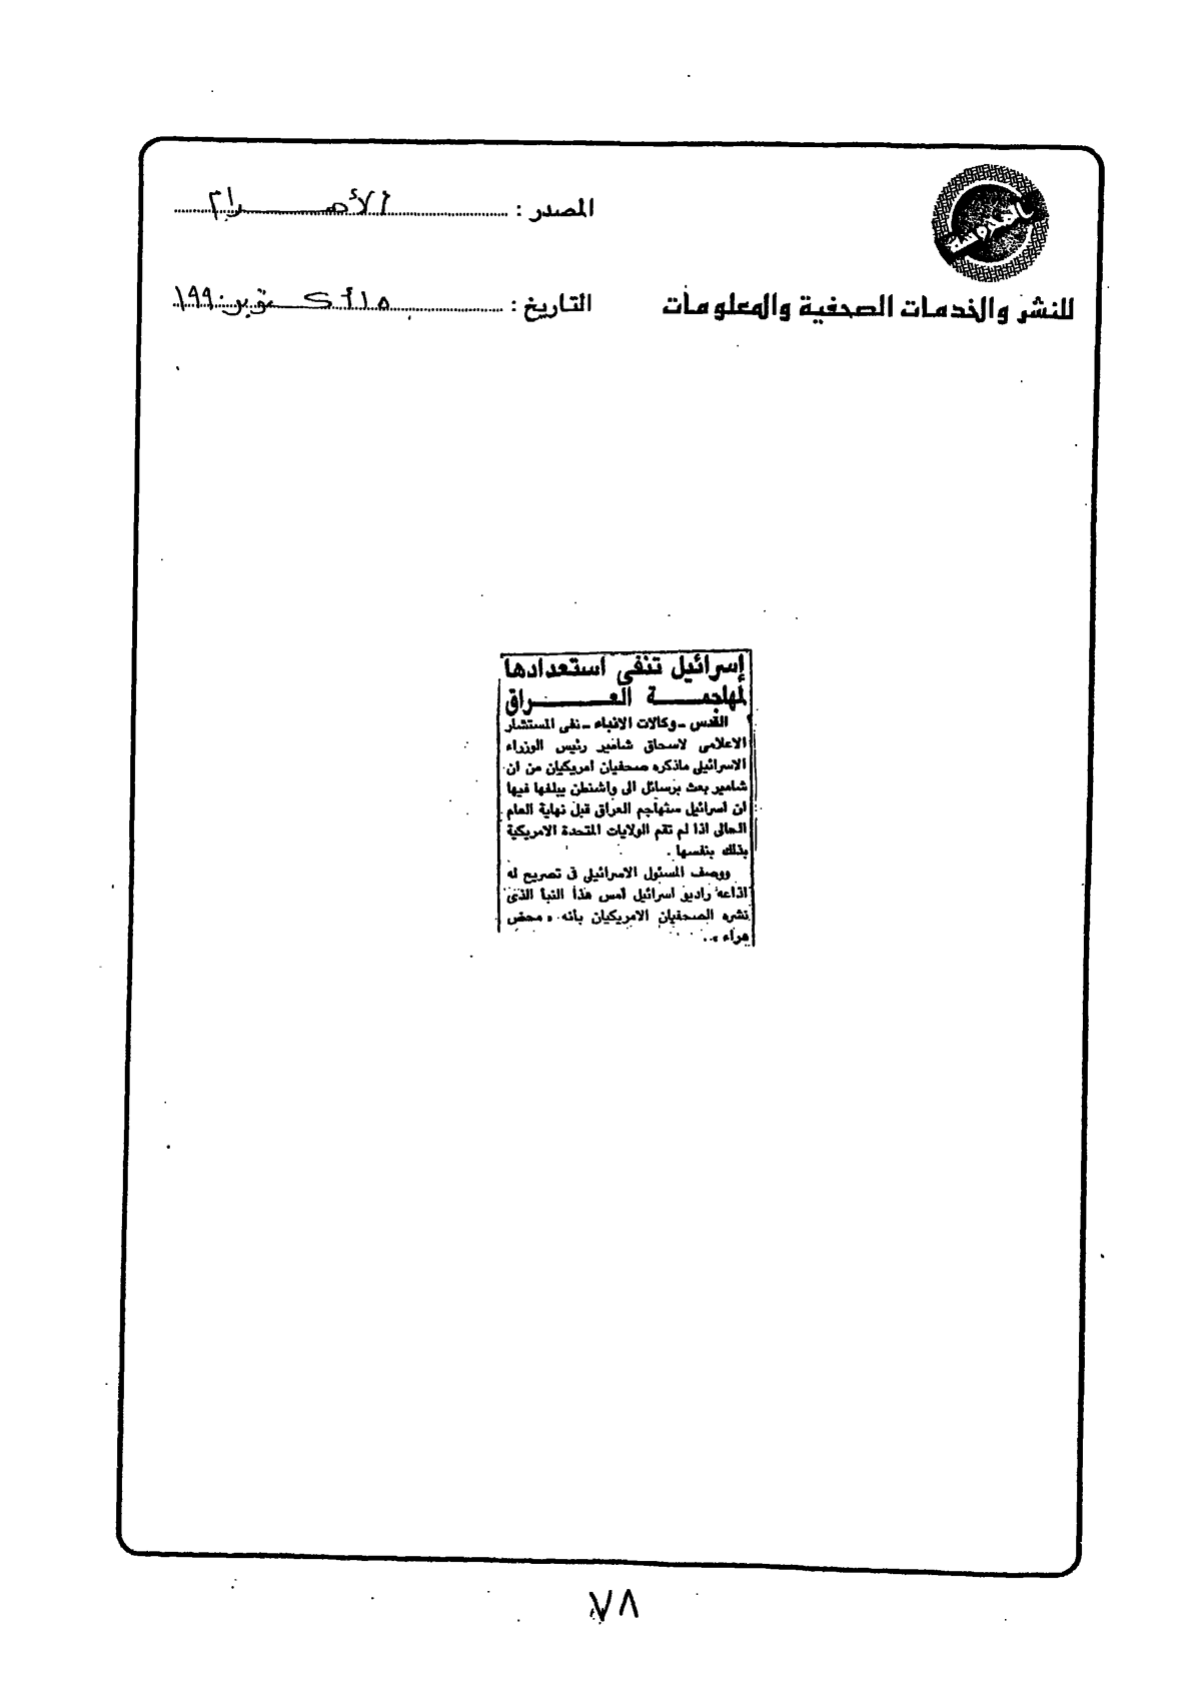 المصدر : الأهرام
للنشر والخدمات الصحفية والمعلومات
التاريخ : ١٥ أكتوبر ١٩٩٠
إسرائيل تنفى استعدادها
لمهاجمة العراق
القدس ـ وكالات الانباء ـ نفى المستشار
الاعلامى لاسحاق شامير رئيس الوزراء
الاسرائيلى ماذكره صحفيان امريكيان من ان
شامير بعث برسائل الى واشنطن يبلغها فيها
ان اسرائيل ستهاجم العراق قبل نهاية العام
الحالى اذا لم تقم الولايات المتحدة الامريكية
بذلك بنفسها .
ووصف المسئول الاسرائيلى فى تصريح له
اذاعه راديو اسرائيل امس هذا النبا الذى
نشره الصحفيان الامريكيان بأنه « محض
هراء » .
٧٨